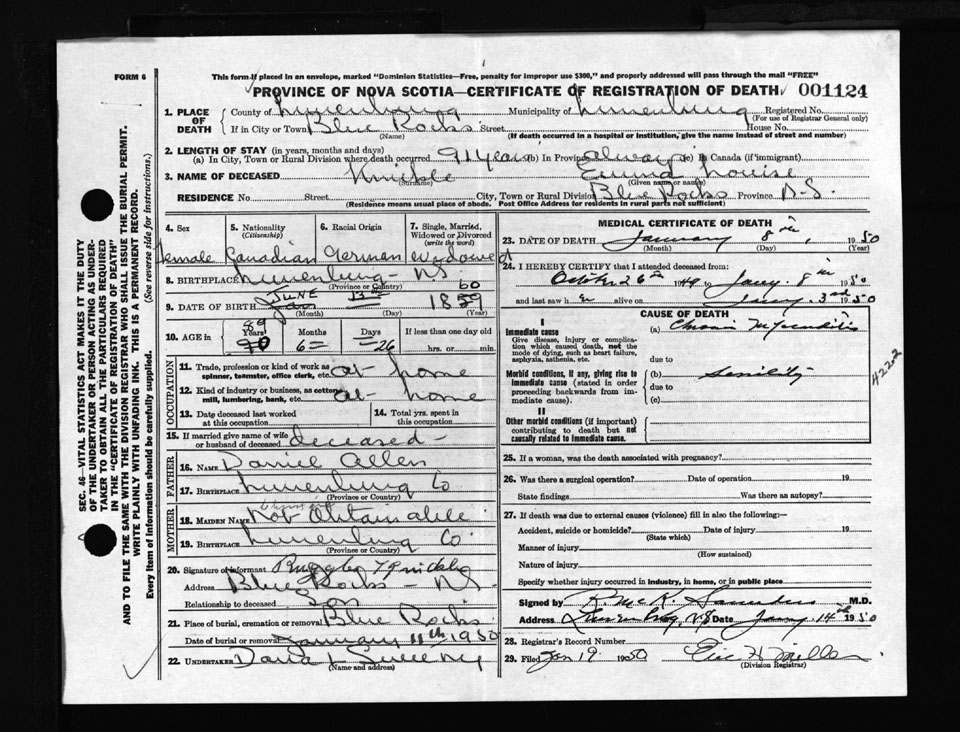 FORM 6
This form if placed in an envelope, marked "Dominion Statistics—Free, penalty for improper use $300," and properly addressed will pass through the mail "FREE"
PROVINCE OF NOVA SCOTIA—CERTIFICATE OF REGISTRATION OF DEATH 001124
1. PLACE OF DEATH County of Lunenburg Municipality of Lunenburg Registered No.
(For use of Registrar General only)
If in City or Town Blue Rocks Street House No.
(Name) (If death occurred in a hospital or institution, give the name instead of street and number)
2. LENGTH OF STAY (in years, months and days)
(a) In City, Town or Rural Division where death occurred 91 years (b) In Province always (c) In Canada (if immigrant)
3. NAME OF DECEASED Knickle Emma Louise
(Surname) (Given name or names)
RESIDENCE No. Street City, Town or Rural Division Blue Rocks Province N.S.
(Residence means usual place of abode. Post Office Address for residents in rural parts not sufficient)
4. Sex 5. Nationality (Citizenship) 6. Racial Origin 7. Single, Married, Widowed or Divorced (write the word)
Female Canadian German Widowed
8. BIRTHPLACE Lunenburg - NS
(Province or Country)
60
9. DATE OF BIRTH JUNE 13 1859
(Month) (Day) (Year)
10. AGE in Years Months Days If less than one day old
89
90 6 26 hrs. or min.
OCCUPATION
11. Trade, profession or kind of work as spinner, teamster, office clerk, etc. at home
12. Kind of industry or business, as cotton mill, lumbering, bank, etc. at home
13. Date deceased last worked at this occupation 14. Total yrs. spent in this occupation
15. If married give name of wife or husband of deceased deceased -
FATHER
16. NAME Daniel Allen
17. BIRTHPLACE Lunenburg Co
(Province or Country)
MOTHER
18. MAIDEN NAME Not Obtainable
19. BIRTHPLACE Lunenburg Co
(Province or Country)
20. Signature of informant Ruggles Knickle
Address Blue Rocks - NS
Relationship to deceased Son
21. Place of burial, cremation or removal Blue Rocks
Date of burial or removal January 11th 1950
22. UNDERTAKER Sweeny
(Name and address)
MEDICAL CERTIFICATE OF DEATH
23. DATE OF DEATH January 8th, 1950
(Month) (Day) (Year)
24. I HEREBY CERTIFY that I attended deceased from:
October 26th 1949 to Jany. 8th 1950
and last saw her alive on Jany. 3rd 1950
CAUSE OF DEATH
I
Immediate cause
Give disease, injury or complication which caused death, not the mode of dying, such as heart failure, asphyxia, asthenia, etc.
(a) Chronic Myocarditis
due to
Morbid conditions, if any, giving rise to immediate cause (stated in order proceeding backwards from immediate cause).
(b) Senility
due to
(c)
II
Other morbid conditions (if important) contributing to death but not causally related to immediate cause.
4222
25. If a woman, was the death associated with pregnancy?
26. Was there a surgical operation? Date of operation 19
State findings Was there an autopsy?
27. If death was due to external causes (violence) fill in also the following:—
Accident, suicide or homicide? Date of injury 19
(State which)
Manner of injury
(How sustained)
Nature of injury
Specify whether injury occurred in industry, in home, or in public place
Signed by R. McK. Saunders M.D.
Address Lunenburg, N.S Date Jany. 14th 1950
28. Registrar's Record Number
29. Filed Jan 19 1950 Eric H Miller
(Division Registrar)
SEC. 46—VITAL STATISTICS ACT MAKES IT THE DUTY
OF THE UNDERTAKER OR PERSON ACTING AS UNDER-
TAKER TO OBTAIN ALL THE PARTICULARS REQUIRED
IN THE "CERTIFICATE OF REGISTRATION OF DEATH"
AND TO FILE THE SAME WITH THE DIVISION REGISTRAR WHO SHALL ISSUE THE BURIAL PERMIT.
WRITE PLAINLY WITH UNFADING INK. THIS IS A PERMANENT RECORD.
Every item of information should be carefully supplied. (See reverse side for instructions.)